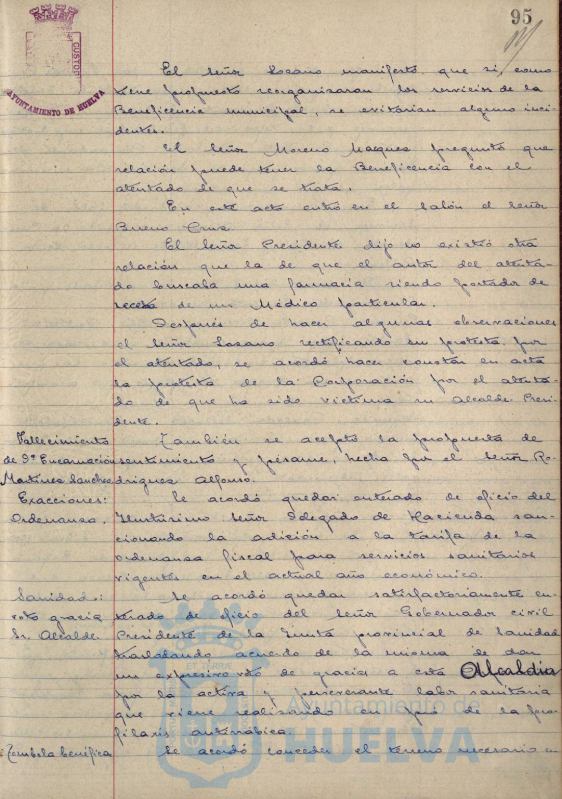 95
CUSTOD
AYUNTAMIENTO DE HUELVA
El Señor Lozano manifestó que si, como
tiene propuesto reorganizaran los servicios de la
Beneficencia municipal, se evitarian algunos inci-
dentes.
El Señor Moreno Marquez preguntó que
relación puede tener la Beneficencia con el
atentado de que se trata.
En este acto entró en el Salón el Señor
Bueno Cruz
El Señor Presidente dijo no existió otra
relación que la de que el autor del atenta-
do buscaba una farmacia siendo portador de
receta de un Médico particular.
Después de hacer algunas observaciones
el Señor Lozano rectificando su protesta por
el atentado, se acordó hacer constar en acta
la protesta de la Corporación por el atenta-
do de que ha sido victima su Alcalde Presi-
dente.
Fallecimiento
de Dª Encarnación
Martinez Sanchez
También se aceptó la propuesta de
sentimiento y pésame, hecha por el Señor Ro-
driguez Alfonso.
Exacciones:
Ordenanza.
Se acordó quedar enterado de oficio del
Ilustrisimo Señor Delegado de Hacienda san-
cionando la adición a la tarifa de la
ordenanza fiscal para servicios sanitarios
vigentes en el actual año económico.
Sanidad:
voto gracia
Sr. Alcalde
Se acordó quedar satisfactoriamente en-
terado de oficio del Señor Gobernador civil
Presidente de la Junta provincial de Sanidad
trasladando acuerdo de la misma de dar
un expresivo voto de gracias a esta Alcaldía
por la activa y perseverante labor sanitaria
que viene realizando en pro de la pro-
filaxis antirrábica.
Tombola benéfica
Se acordó conceder el terreno necesario en
ET TERRAE
Ayuntamiento de
HUELVA